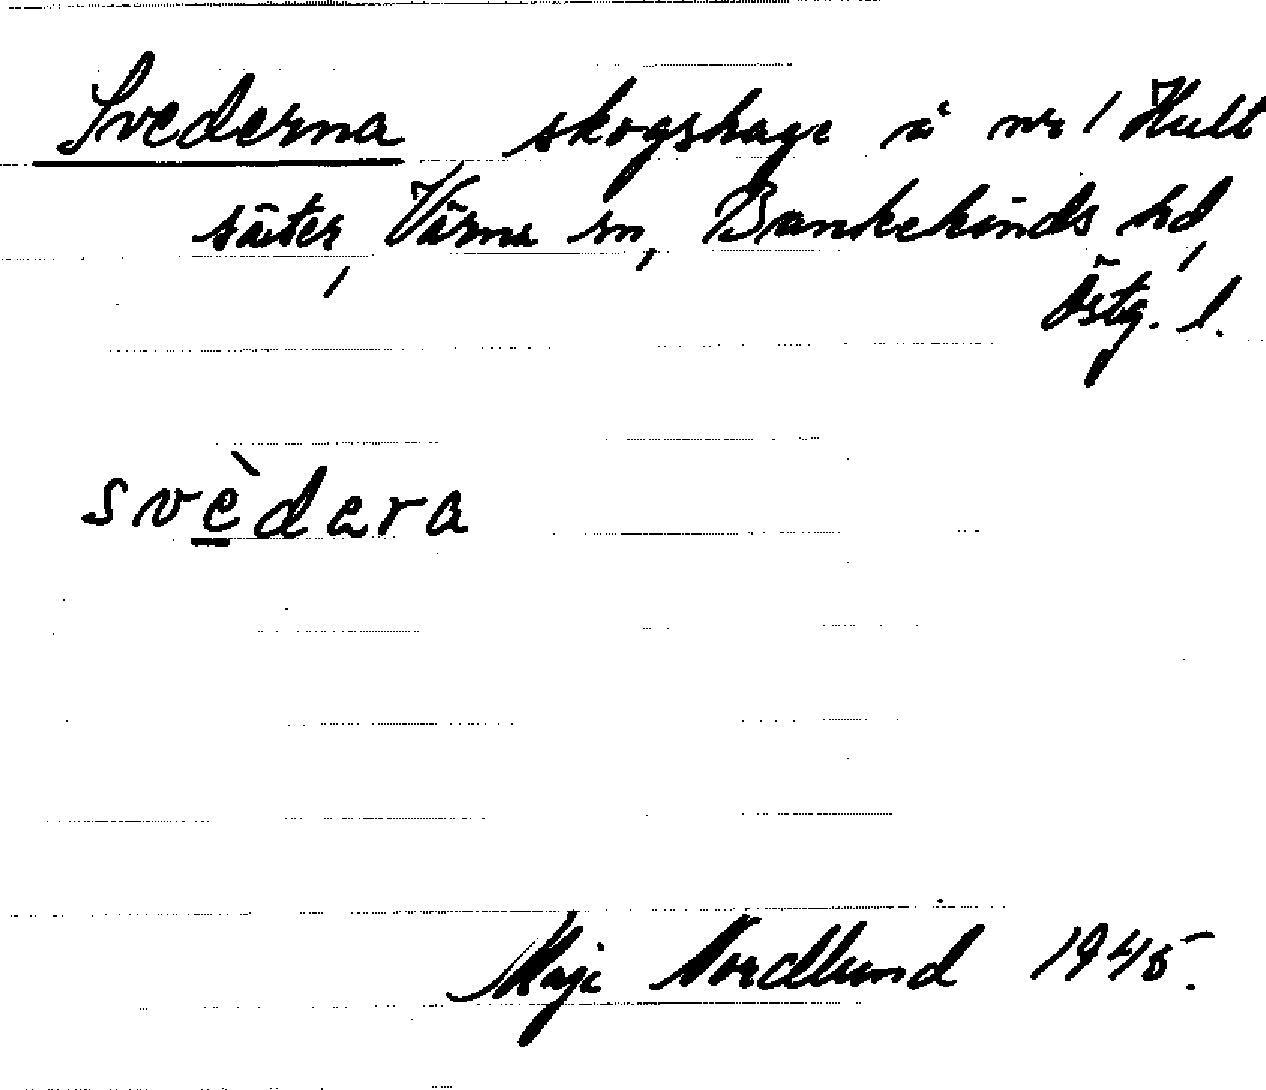 Svederna skogshage å nr 1 Hult
säter, Värna sn, Bankekinds hd,
Östg. l.
svèdera
Maje Nordlund 1945.